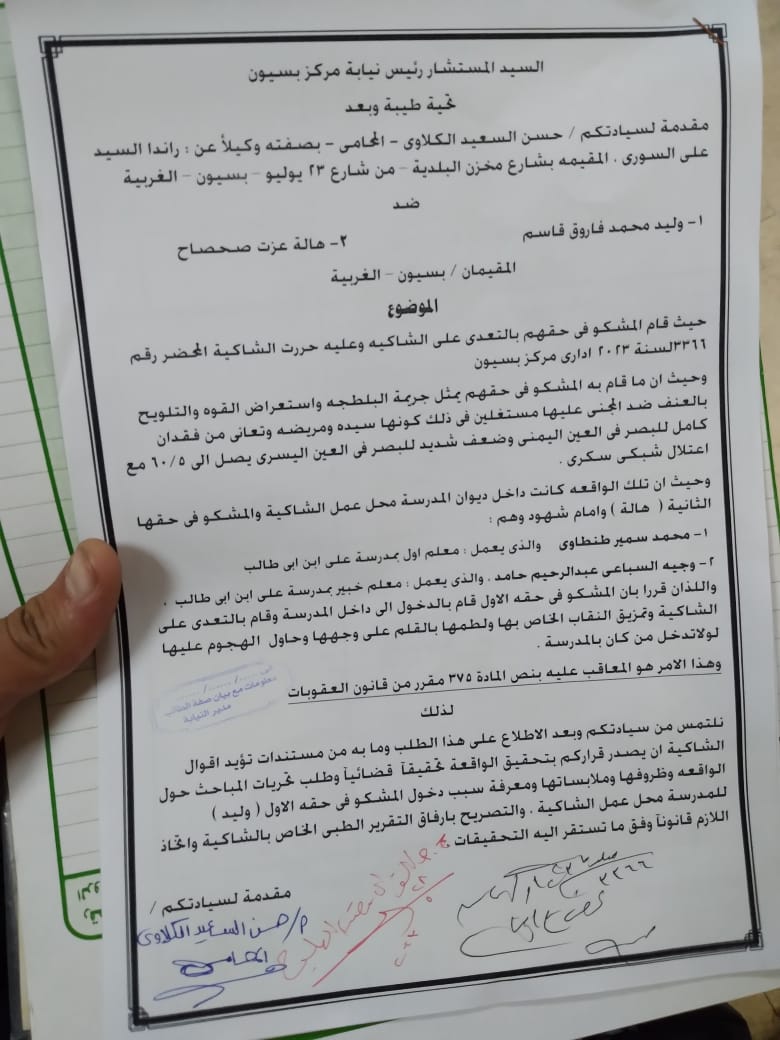 السيد المستشار رئيس نيابة مركز بسيون
تحية طيبة وبعد
مقدمة لسيادتكم / حسن السعيد الكلاوى – المحامى – بصفته وكيلاً عن : راندا السيد
على السورى . المقيمه بشارع مخزن البلدية – من شارع ٢٣ يوليو – بسيون – الغربية
ضد
١- وليد محمد فاروق قاسم ٢- هالة عزت صحصاح
المقيمان / بسيون – الغربية
الموضوع
حيث قام المشكو فى حقهم بالتعدى على الشاكيه وعليه حررت الشاكية المحضر رقم
٣٣٦٦لسنة ٢٠٢٣ ادارى مركز بسيون
وحيث ان ما قام به المشكو فى حقهم يمثل جريمة البلطجه واستعراض القوه والتلويح
بالعنف ضد المجنى عليها مستغلين فى ذلك كونها سيده ومريضه وتعانى من فقدان
كامل للبصر فى العين اليمنى وضعف شديد للبصر فى العين اليسرى يصل الى ٦٠/٥ مع
اعتلال شبكى سكرى .
وحيث ان تلك الواقعه كانت داخل ديوان المدرسة محل عمل الشاكية والمشكو فى حقها
الثانية ( هالة ) وامام شهود وهم :
١- محمد سمير طنطاوى والذى يعمل : معلم اول بمدرسة على ابن ابى طالب
٢- وجيه السباعى عبدالرحيم حامد . والذى يعمل : معلم خبير بمدرسة على ابن ابى طالب .
واللذان قررا بان المشكو فى حقه الاول قام بالدخول الى داخل المدرسة وقام بالتعدى على
الشاكية وتمزيق النقاب الخاص بها ولطمها بالقلم على وجهها وحاول الهجوم عليها
لولاتدخل من كان بالمدرسة .
وهذا الامر هو المعاقب عليه بنص المادة ٣٧٥ مقرر من قانون العقوبات
معلومات مع بيان صفة الطالب
مدير النيابة
لذلك
نلتمس من سيادتكم وبعد الاطلاع على هذا الطلب وما به من مستندات تؤيد اقوال
الشاكية ان يصدر قراركم بتحقيق الواقعة تحقيقاً قضائياً وطلب تحريات المباحث حول
الواقعه وظروفها وملابساتها ومعرفة سبب دخول المشكو فى حقه الاول ( وليد )
للمدرسة محل عمل الشاكية . والتصريح بارفاق التقرير الطبى الخاص بالشاكية واتخاذ
اللازم قانوناً وفق ما تستقر اليه التحقيقات
٣٣٦٦
مقدمة لسيادتكم /
م/ حسن السعيد الكلاوى
المحامى